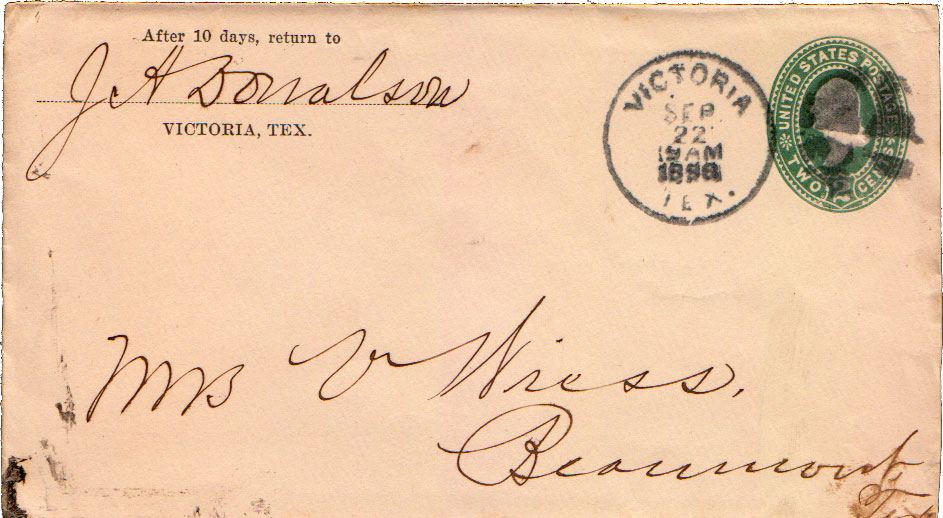 After 10 days, return to
J A Donalson
VICTORIA, TEX.
VICTORIA
SEP
22
AM
TEX.
UNITED STATES POSTAGE
TWO CENTS
2
V Wiess.
Beaumont
Tex